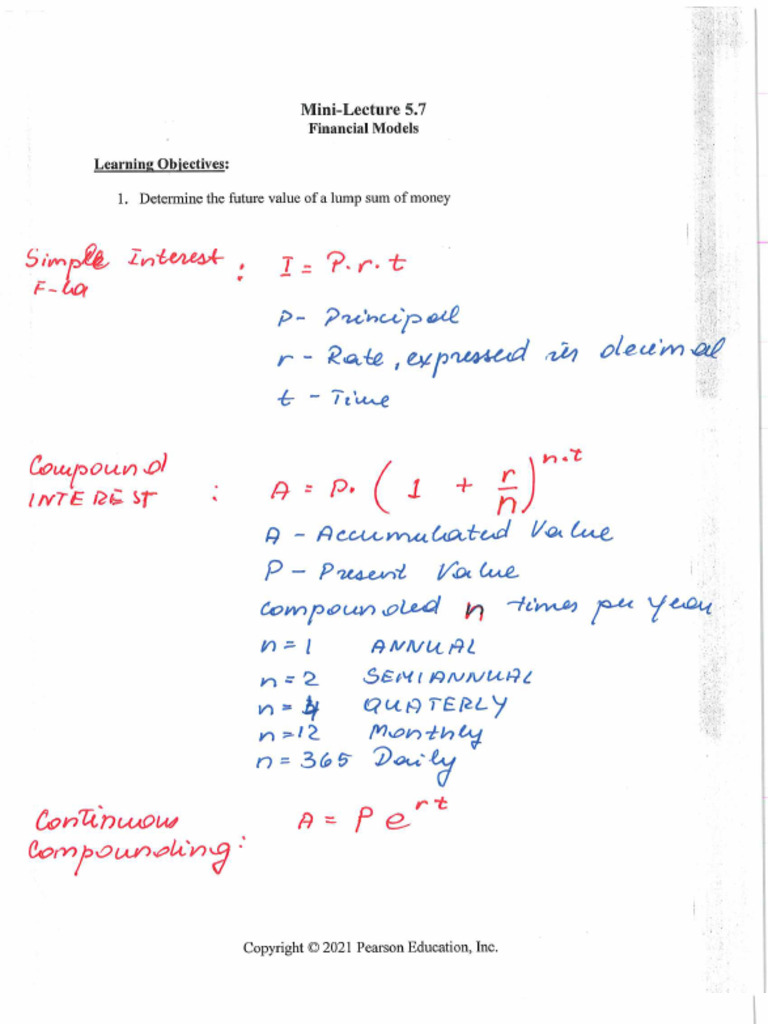 Mini-Lecture 5.7
Financial Models
Learning Objectives:
1. Determine the future value of a lump sum of money
Simple Interest F-la : I = P.r.t
P - Principal
r - Rate, expressed in decimal
t - Time
Compound INTEREST : A = P. (1 + r/n)^n.t
A - Accumulated Value
P - Present Value
compounded n times per year
n = 1 ANNUAL
n = 2 SEMIANNUAL
n = 4 QUATERLY
n = 12 Monthly
n = 365 Daily
Continuous Compounding: A = P e^rt
Copyright © 2021 Pearson Education, Inc.